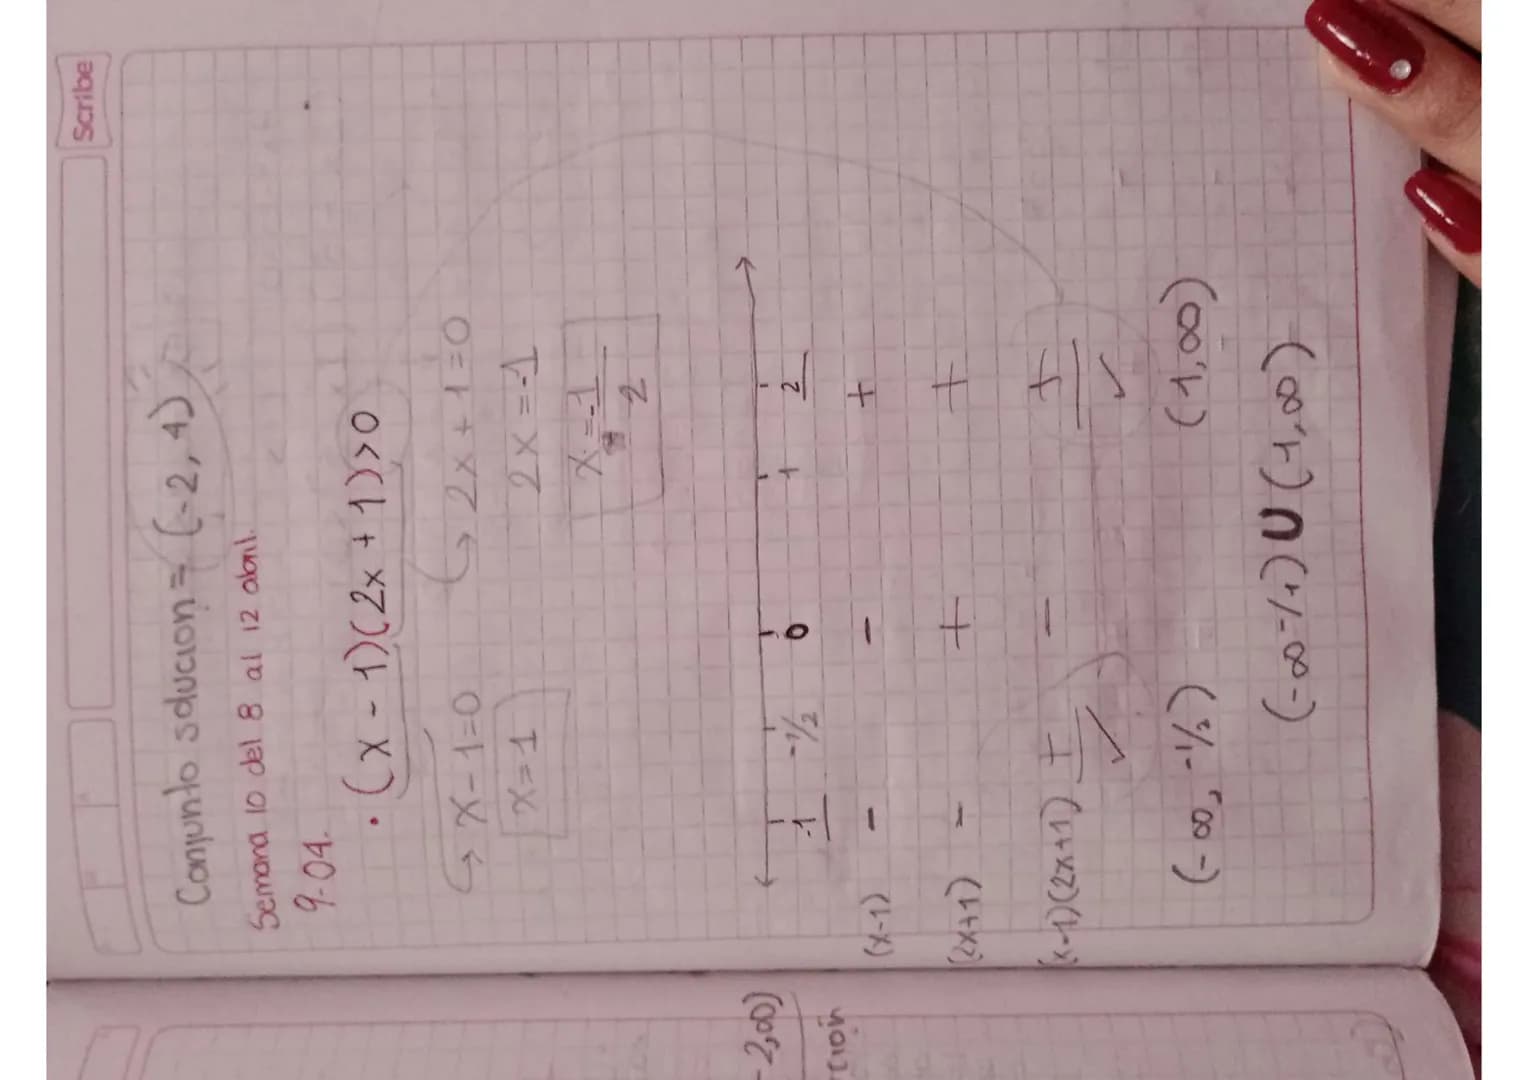 Scribe
Conjunto solucion = (-2, 4)
Semana 10 del 8 al 12 abril.
9-04.
• (x - 1)(2x + 1) > 0
↳ x - 1 = 0 ↳ 2x + 1 = 0
x = 1 2x = -1
x = -1/2
-1 -1/2 0 1 2
(x-1) - - +
(2x+1) - + +
(x-1)(2x+1) + - +
✓ ✓
(-∞, -1/2) (1, ∞)
(-∞ -1/1) U (1, ∞)
-2, ∞)
ción